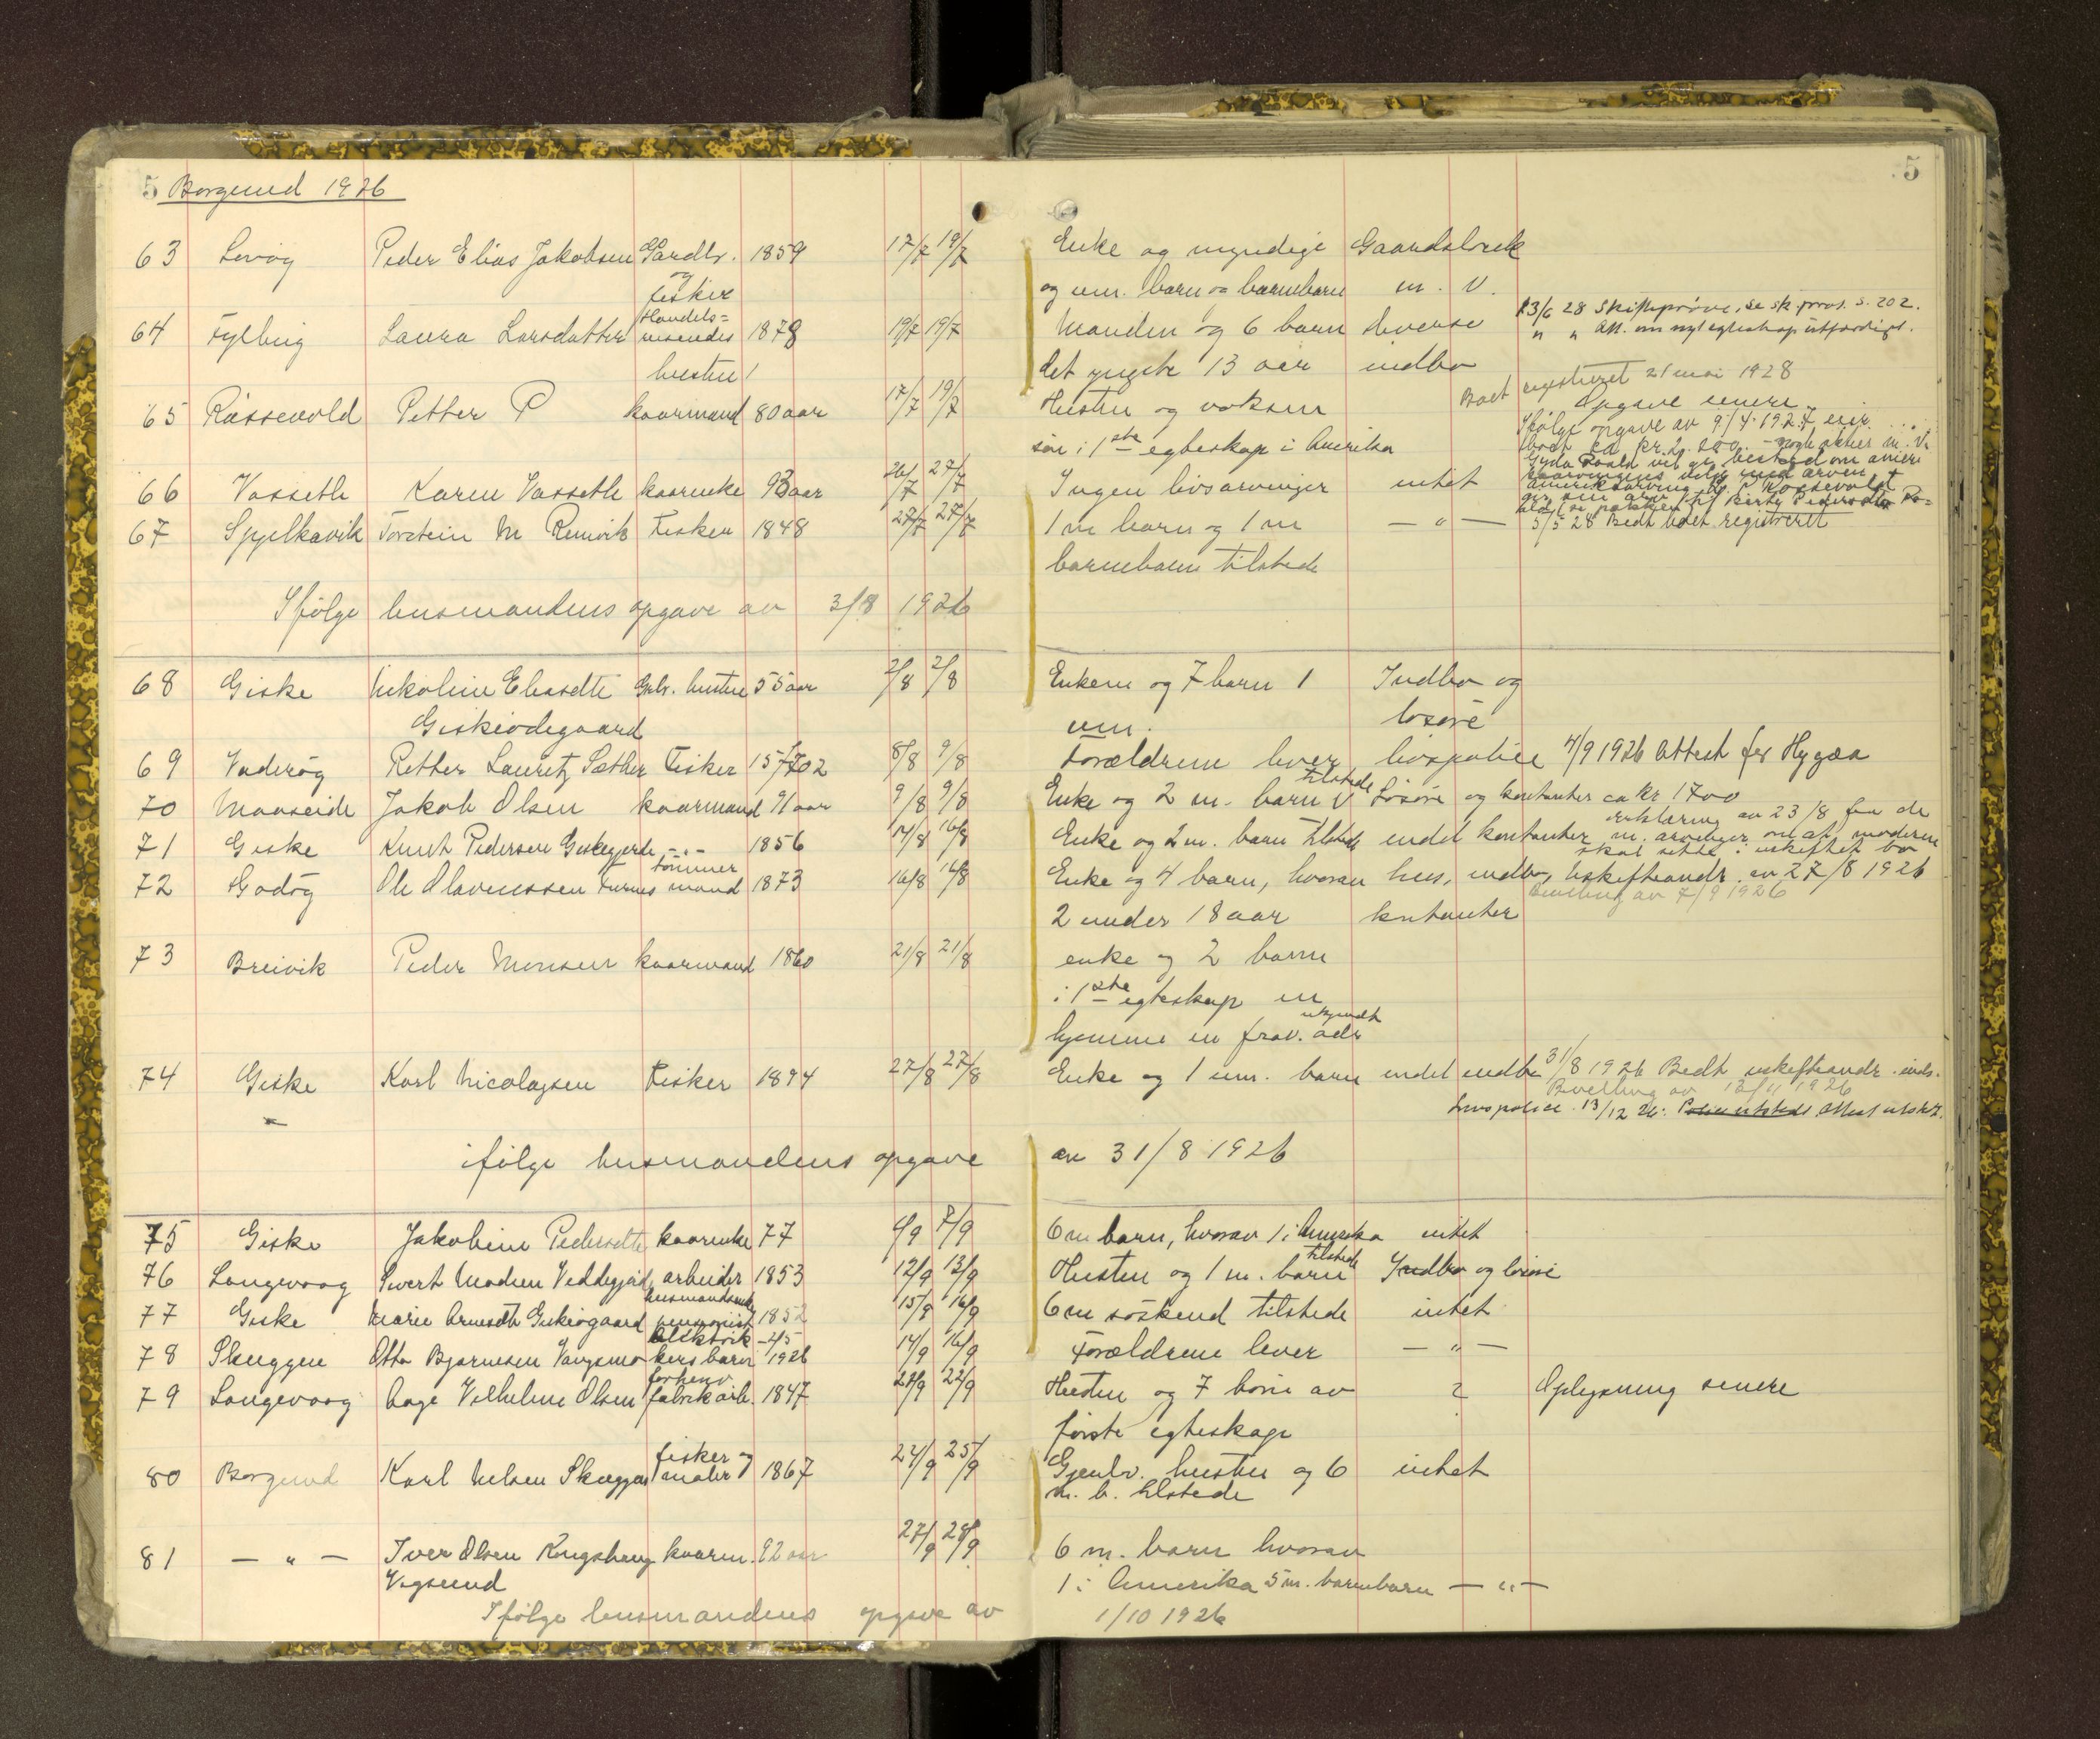 5 Borgund 1926
5
63 Peder Elias Jakobsen Gardbr. 1859 17/7 19/7 Enke og myndige Gaardsbruk
og fisker og um. barn og barnebarn m. V.
64 Fylling Laura Larsdatter Handels= 1878 19/7 19/7 Manden og 6 barn diverse 13/6 28 Skifteprøve, se sk. prot. s. 202.
reisendes hustru det yngste 13 aar indbo " " Att. om nyt egteskap utfærdiget.
Boet registreret 21 mai 1928
65 Råssevold Petter P kaarmand 80 aar 17/7 19/7 Hustru og voksen Opgave senere
søn i 1ste egteskap i Amerika Ifølge opgave av 9/4 1927 eier
boet ca kr. 2.200 - nogle aktier m. V.
66 Vasseth Karen Vasseth kaarenke 93 aar 26/7 27/7 Ingen livsarvinger intet
67 Spjelkavik Torstein M Remvik Fisker 1848 27/7 27/7 1 m barn og 1 m — " — 5/5 28 Bedt boet registreret
barnebarn tilstede
Ifølge lensmandens opgave av 3/8 1926
68 Giske Nikoline Eliasdtr Gbr. hustru 55 aar 2/8 2/8 Enkem og 7 barn 1 Indbo og
Giskeødegaard um. løsøre
69 Valderøy Petter Lauritz Sæther Fisker 15/7 02 8/8 9/8 Forældrene lever livspolice 4/9 1926 Attest for Hygæa
70 Maaseide Jakob Olsen kaarmand 91 aar 9/8 9/8 Enke og 2 m. barn tilstede Løsøre og kontanter ca kr 1700
erklæring av 23/8 fra de
71 Giske Knut Pedersen Giskegjerde - " - 1856 14/8 16/8 Enke og 2 m. barn tilstede endel kontanter m. arvinger om at moderen
skal sitte i uskiftet bo
72 Godøy Ole Olavenssen Furnes tømmermand 1873 16/8 16/8 Enke og 4 barn, hvorav hus, indbo, Uskifteandr. av 27/8 1926
2 under 18 aar kontanter Bevilling av 7/9 1926
73 Breivik Peder Monsen kaarmand 1860 21/8 21/8 enke og 2 barn
i 1ste egteskap en
hjemme en frav. ukjendt adr
74 Giske Karl Nicolaysen Fisker 1894 27/8 27/8 Enke og 1 um. barn endel indbo 31/8 1926 Bedt uskifteandr. inds.
Bevilling av 12/11 1926
Livspolice. 13/12 26: Police utstedt Attest utstedt.
ifølge lensmandens opgave av 31/8 1926
75 Giske Jakobine Pedersdtr kaarenke 77 6/9 7/9 6 m barn, hvorav 1 i Amerika intet
76 Langevaag Sivert Madsen Veddegjerde arbeider 1853 12/9 13/9 Hustru og 1 m. barn tilstede Indbo og løsøre
77 Giske Marie Arnesdtr Giskeøgaard pensionist 1852 15/9 16/9 6 m søskend tilstede intet
78 Skuggen Otto Bjarnesen Vangsmo elektrikers barn 4/5 1926 14/9 16/9 Forældrene lever — " —
79 Langevaag Aage Vilhelm Olsen forhenv fabrikarb. 1847 21/9 22/9 Hustru og 7 barn av ? Oplysning senere
første egteskap
80 Borgund Karl Nilsen Skuggen fisker og maler 1867 24/9 25/9 Gjenlv. hustru og 6 intet
m. b. tilstede
81 — " — Iver Olsen Kongshaug kaarm. 92 aar 27/9 28/9 6 m. barn hvorav
Vegsund 1 i Amerika 5 m. barnebarn — " —
Ifølge lensmandens opgave av 1/10 1926